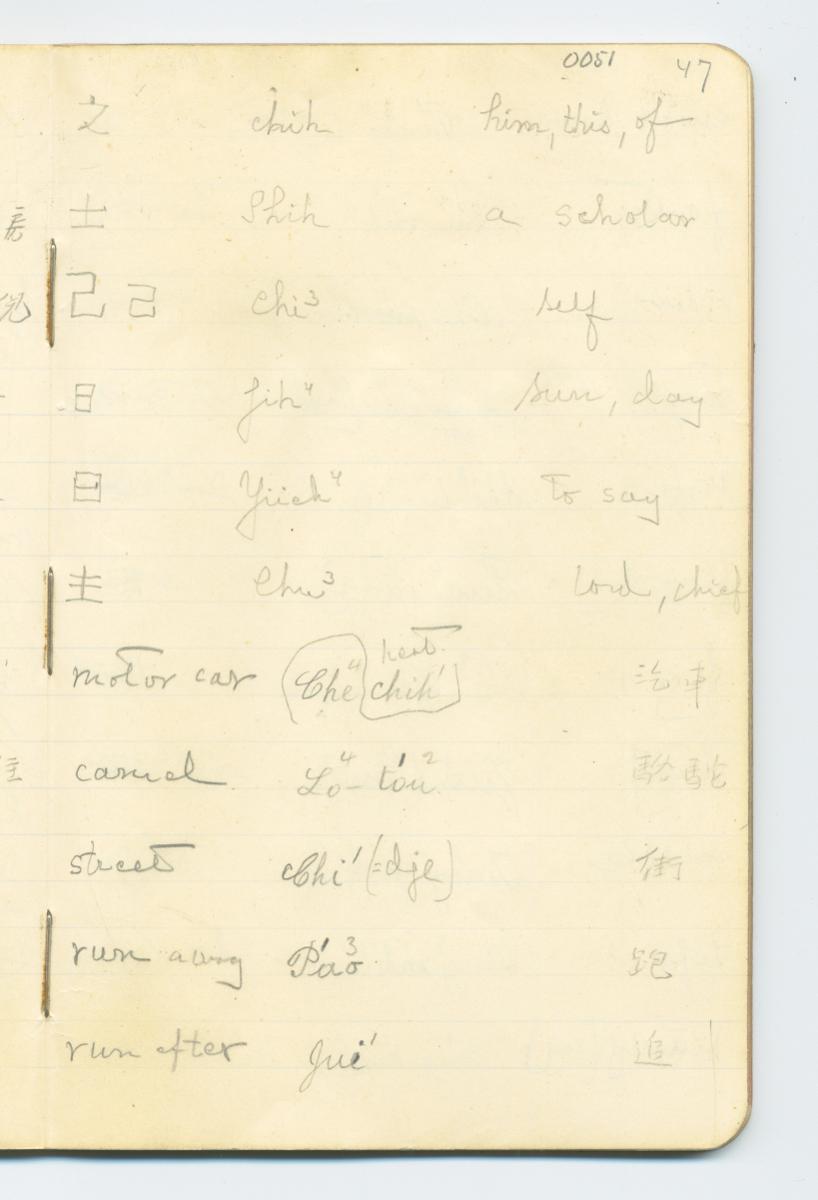 0051 47
之 chih him, this, of
房 士 Shih a scholar
己 己 chi³ self
日 Jih⁴ sun, day
曰 Yüeh⁴ to say
主 Chu³ lord, chief
heat
motor car Che⁴ chih¹ 汽車
camel Lo⁴-t'ou² 駱駝
street Chi¹ (=dje) 街
run away P'ao³ 跑
run after Jui¹ 追